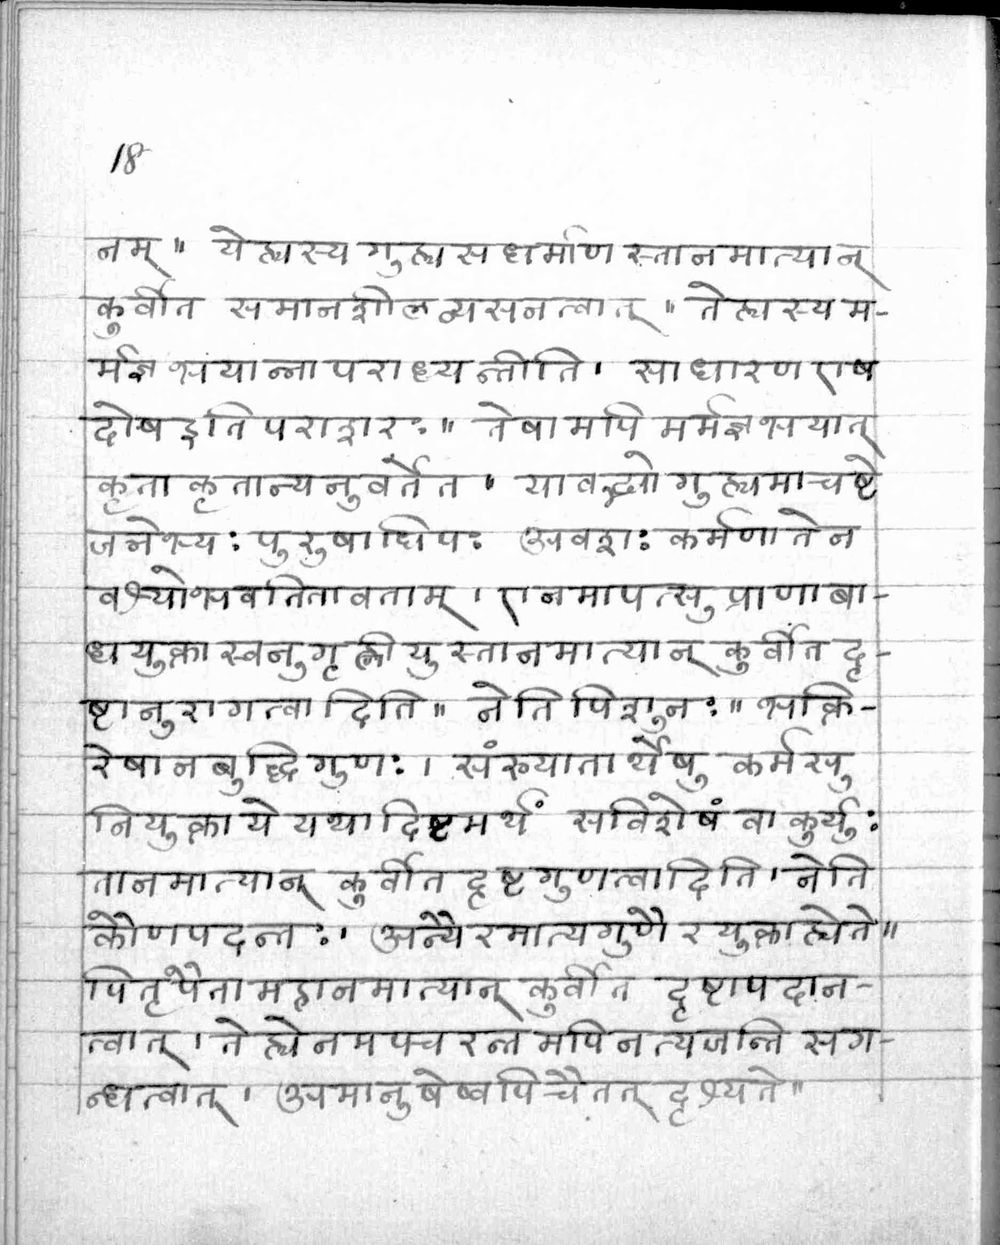 18
नम्॥ येह्यस्य गुह्यसधर्माणस्तानमात्यान्
कुर्वीत समानशीलव्यसनत्वात्॥ तेह्यस्य म-
र्मज्ञभयान्नापराध्यन्तीति। साधारण एष
दोष इति पराशरः॥ तेषामपि मर्मज्ञभयात्
कृताकृतान्यनुवर्तेत। यावद्भ्यो गुह्यमाचष्टे
जनेभ्यः पुरुषाधिपः अवशः कर्मणा तेन
वश्यो भवति तावताम्। एनमापत्सु प्राणाबा-
धयुक्तास्वनुगृह्णीयुस्तानमात्यान् कुर्वीत दृ-
ष्टानुरागत्वादिति॥ नेति पिशुनः॥ भक्ति-
रेषा न बुद्धिगुणः। संख्यातार्थेषु कर्मसु
नियुक्ता ये यथादिष्टमर्थं सविशेषं वा कुर्युः
तानमात्यान् कुर्वीत दृष्टगुणत्वादिति। नेति
कौणपदन्तः। अन्यैरमात्यगुणैरयुक्ता ह्येते॥
पितृपैतामहानमात्यान् कुर्वीत दृष्टापदान-
त्वात्। ते ह्येनमपचरन्तमपि न त्यजन्ति सग-
न्धत्वात्। अमानुषेष्वपि चैतत् दृश्यते॥